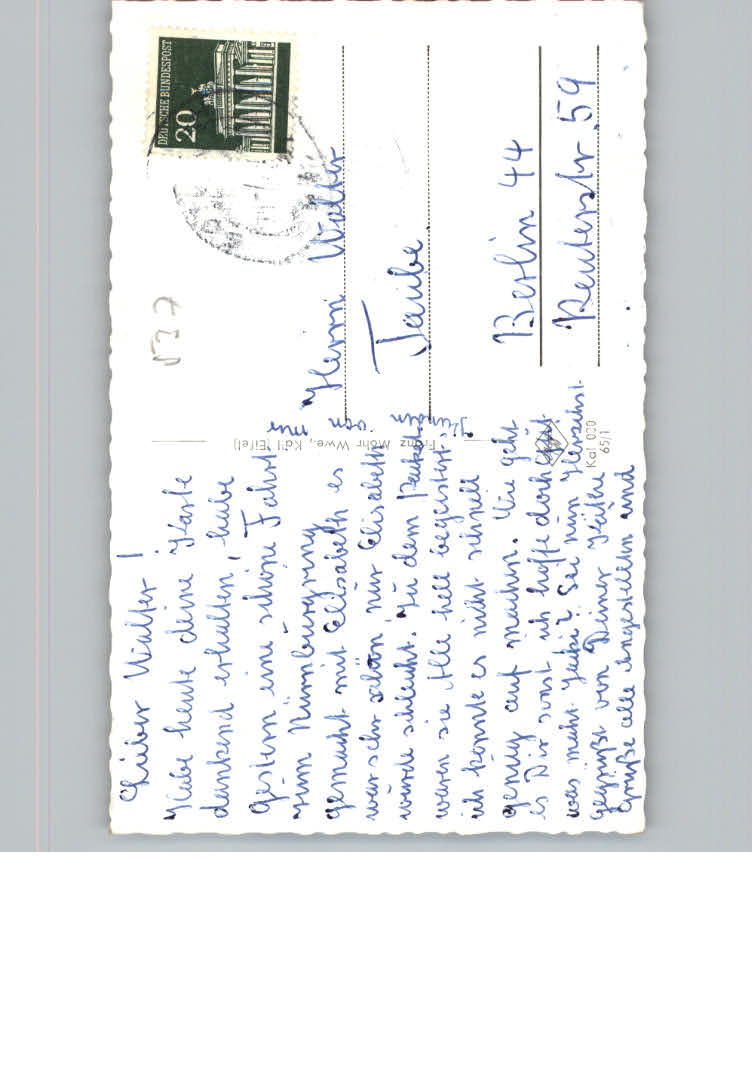 Lieber Walter!
Habe heute deine Karte
dankend erhalten, habe
gestern eine schöne Fahrt
zum Nürnburgring
gemacht mit Elisabeth es
war sehr schön nur Elisabeth
wurde schlecht. Zu dem Paket
waren sie Alle hell begeistert,
ich konnte es nicht schnell
genug auf machen. Wie geht
es Dir sonst ich hoffe doch gut
was macht Jacki? Sei nun Herzlichst
gegrüßt von Deiner Käthe
Grüße alle Angestellten und
von mir
Franz Mohr Wwe., Kall (Eifel)
Kal 000
65/1
DEUTSCHE BUNDESPOST
20
Herrn Walter
Taube
Berlin 44
Reuterstr 59